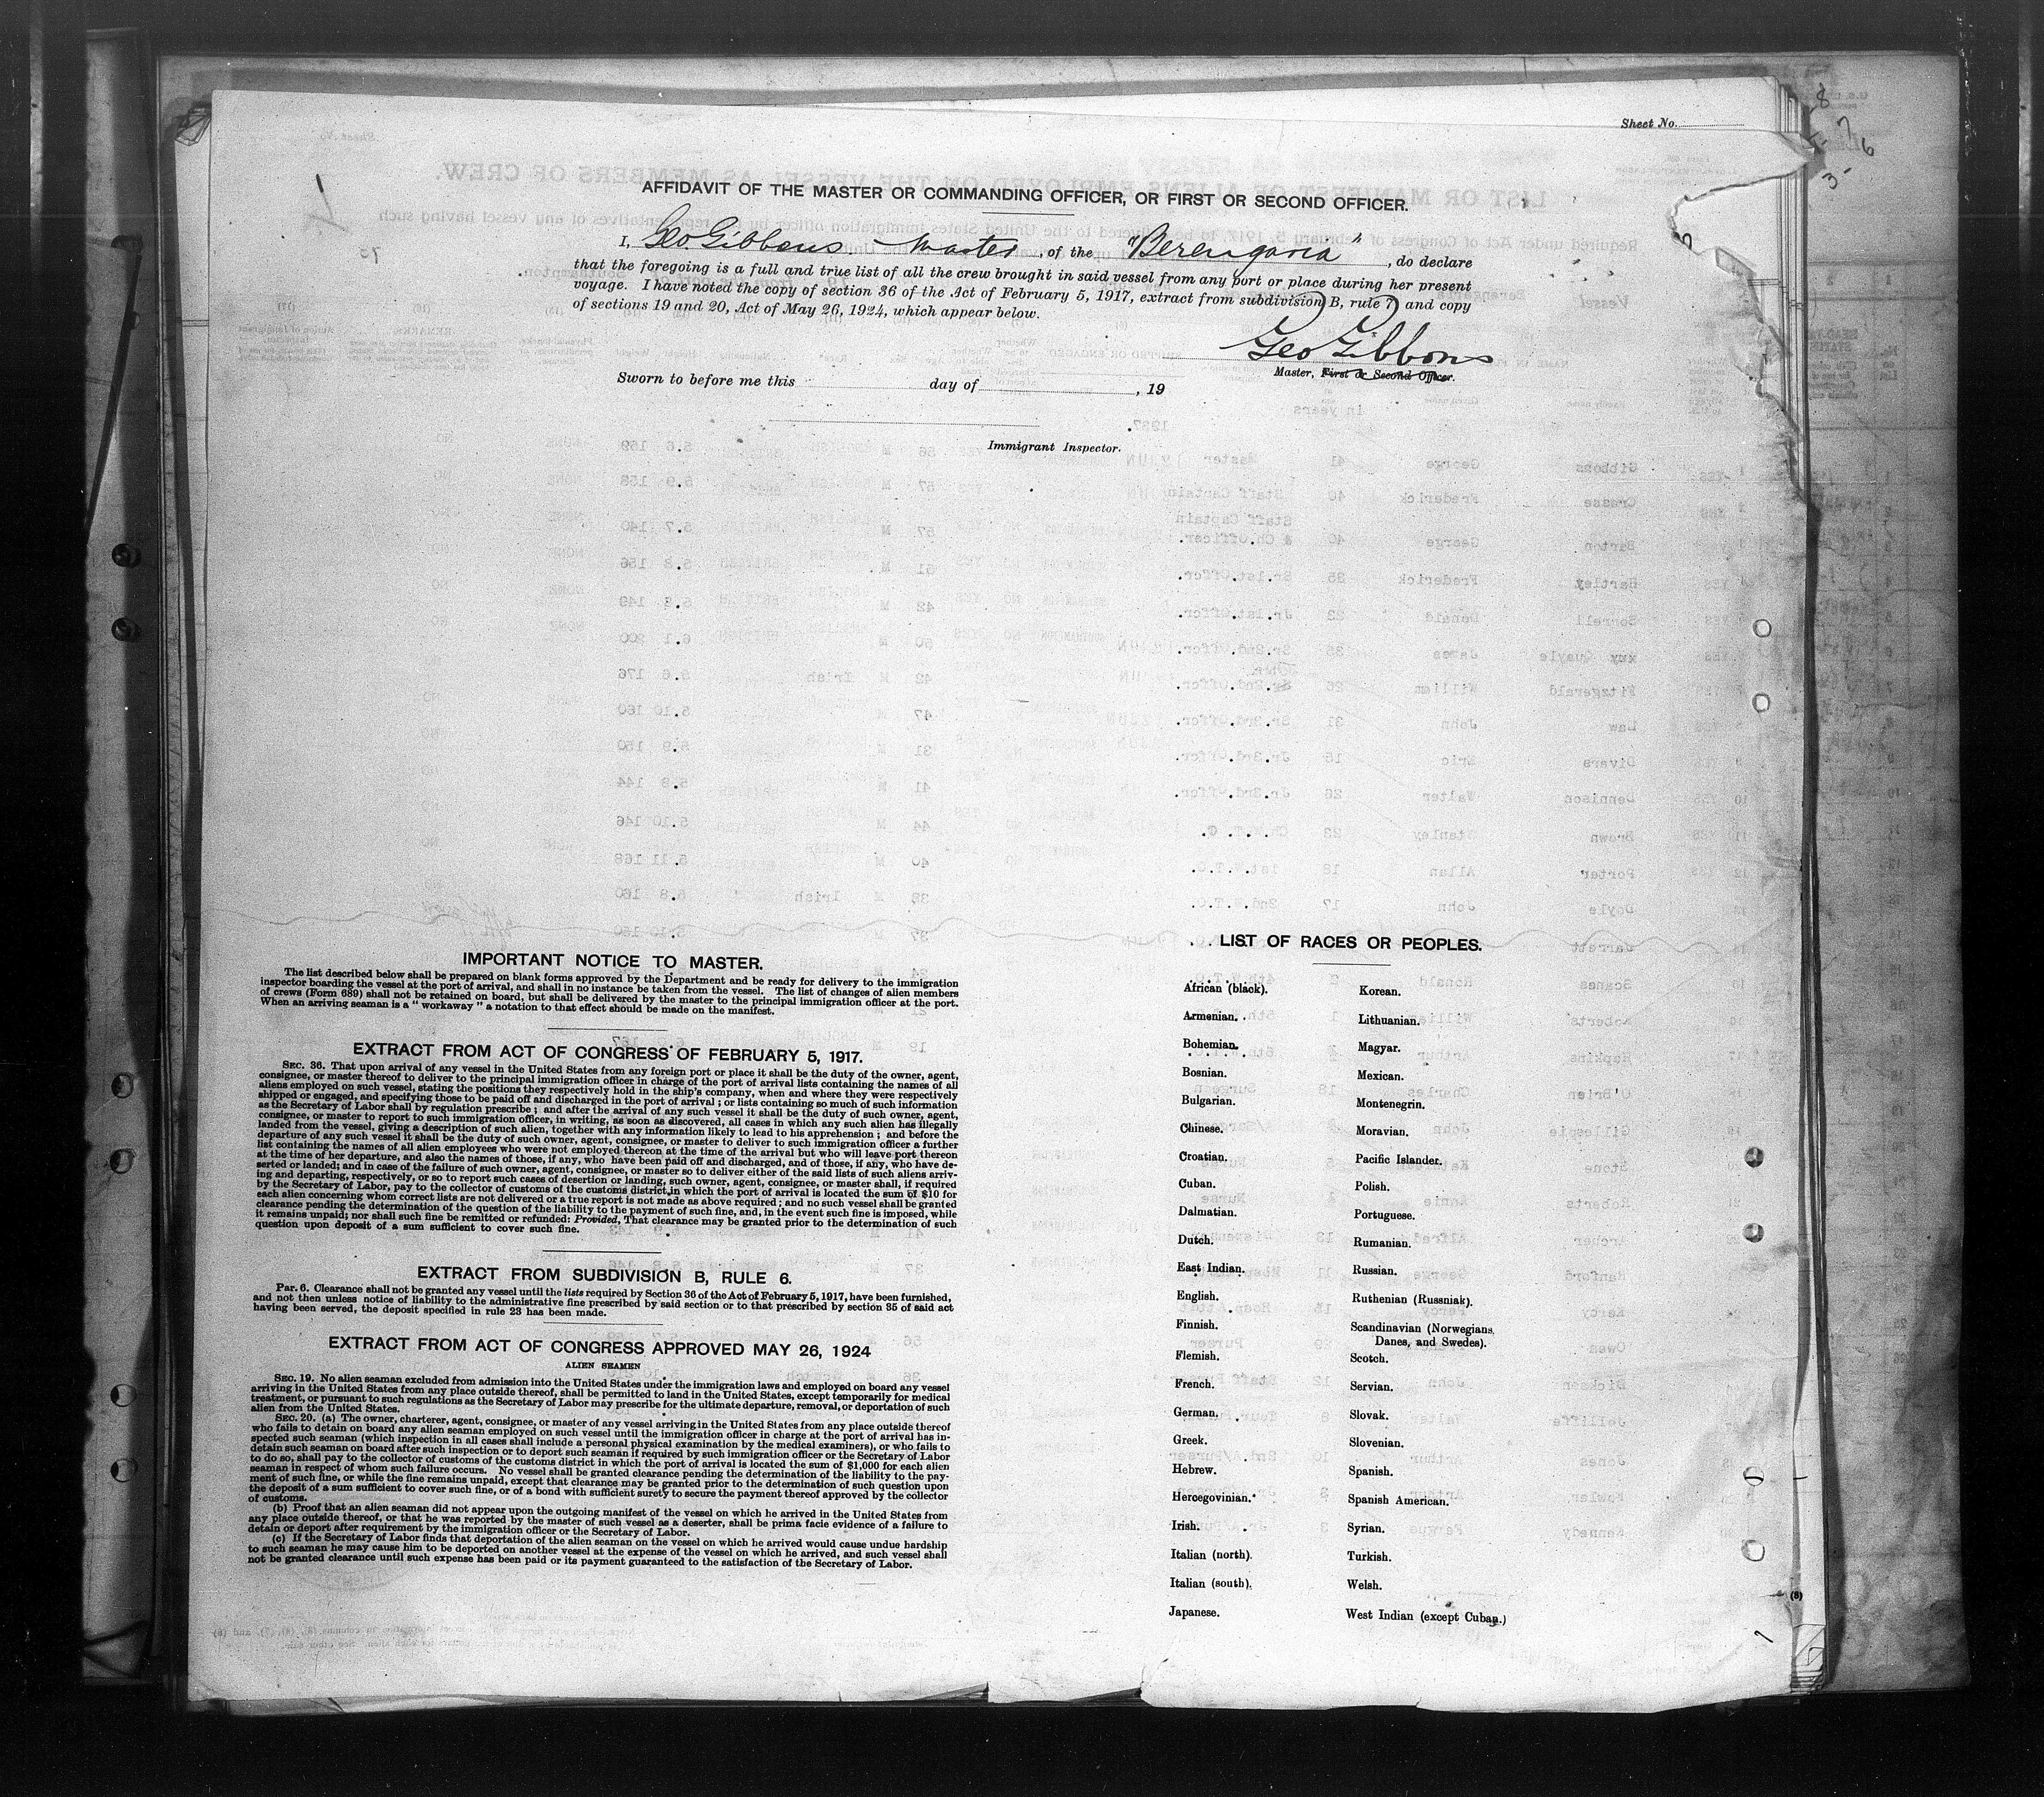 Sheet No.
AFFIDAVIT OF THE MASTER OR COMMANDING OFFICER, OR FIRST OR SECOND OFFICER.
I, Geo Gibbons - Master, of the "Berengaria", do declare
that the foregoing is a full and true list of all the crew brought in said vessel from any port or place during her present
voyage. I have noted the copy of section 36 of the Act of February 5, 1917, extract from subdivision B, rule 7, and copy
of sections 19 and 20, Act of May 26, 1924, which appear below.
Geo Gibbons
Master, First or Second Officer.
Sworn to before me this day of , 19
Immigrant Inspector.
IMPORTANT NOTICE TO MASTER.
The list described below shall be prepared on blank forms approved by the Department and be ready for delivery to the immigration
inspector boarding the vessel at the port of arrival, and shall in no instance be taken from the vessel. The list of changes of alien members
of crews (Form 689) shall not be retained on board, but shall be delivered by the master to the principal immigration officer at the port.
When an arriving seaman is a "workaway" a notation to that effect should be made on the manifest.
EXTRACT FROM ACT OF CONGRESS OF FEBRUARY 5, 1917.
SEC. 36. That upon arrival of any vessel in the United States from any foreign port or place it shall be the duty of the owner, agent,
consignee, or master thereof to deliver to the principal immigration officer in charge of the port of arrival lists containing the names of all
aliens employed on such vessel, stating the positions they respectively hold in the ship's company, when and where they were respectively
shipped or engaged, and specifying those to be paid off and discharged in the port of arrival; or lists containing so much of such information
as the Secretary of Labor shall by regulation prescribe; and after the arrival of any such vessel it shall be the duty of such owner, agent,
consignee, or master to report to such immigration officer, in writing, as soon as discovered, all cases in which any such alien has illegally
landed from the vessel, giving a description of such alien, together with any information likely to lead to his apprehension; and before the
departure of any such vessel it shall be the duty of such owner, agent, consignee, or master to deliver to such immigration officer a further
list containing the names of all alien employees who were not employed thereon at the time of the arrival but who will leave port thereon
at the time of her departure, and also the names of those, if any, who have been paid off and discharged, and of those, if any, who have de-
serted or landed; and in case of the failure of such owner, agent, consignee, or master so to deliver either of the said lists of such aliens arriv-
ing and departing, respectively, or so to report such cases of desertion or landing, such owner, agent, consignee, or master shall, if required
by the Secretary of Labor, pay to the collector of customs of the customs district in which the port of arrival is located the sum of $10 for
each alien concerning whom correct lists are not delivered or a true report is not made as above required; and no such vessel shall be granted
clearance pending the determination of the question of the liability to the payment of such fine, and, in the event such fine is imposed, while
it remains unpaid; nor shall such fine be remitted or refunded: Provided, That clearance may be granted prior to the determination of such
question upon deposit of a sum sufficient to cover such fine.
EXTRACT FROM SUBDIVISION B, RULE 6.
PAR. 6. Clearance shall not be granted any vessel until the lists required by Section 36 of the Act of February 5, 1917, have been furnished,
and not then unless notice of liability to the administrative fine prescribed by said section or to that prescribed by section 35 of said act
having been served, the deposit specified in rule 23 has been made.
EXTRACT FROM ACT OF CONGRESS APPROVED MAY 26, 1924
ALIEN SEAMEN
SEC. 19. No alien seaman excluded from admission into the United States under the immigration laws and employed on board any vessel
arriving in the United States from any place outside thereof, shall be permitted to land in the United States, except temporarily for medical
treatment, or pursuant to such regulations as the Secretary of Labor may prescribe for the ultimate departure, removal, or deportation of such
alien from the United States.
SEC. 20. (a) The owner, charterer, agent, consignee, or master of any vessel arriving in the United States from any place outside thereof
who fails to detain on board any alien seaman employed on such vessel until the immigration officer in charge at the port of arrival has in-
spected such seaman (which inspection in all cases shall include a personal physical examination by the medical examiners), or who fails to
detain such seaman on board after such inspection or to deport such seaman if required by such immigration officer or the Secretary of Labor
to do so, shall pay to the collector of customs of the customs district in which the port of arrival is located the sum of $1,000 for each alien
seaman in respect of whom such failure occurs. No vessel shall be granted clearance pending the determination of the liability to the pay-
ment of such fine, or while the fine remains unpaid, except that clearance may be granted prior to the determination of such question upon
the deposit of a sum sufficient to cover such fine, or of a bond with sufficient surety to secure the payment thereof approved by the collector
of customs.
(b) Proof that an alien seaman did not appear upon the outgoing manifest of the vessel on which he arrived in the United States from
any place outside thereof, or that he was reported by the master of such vessel as a deserter, shall be prima facie evidence of a failure to
detain or deport after requirement by the immigration officer or the Secretary of Labor.
(c) If the Secretary of Labor finds that deportation of the alien seaman on the vessel on which he arrived would cause undue hardship
to such seaman he may cause him to be deported on another vessel at the expense of the vessel on which he arrived, and such vessel shall
not be granted clearance until such expense has been paid or its payment guaranteed to the satisfaction of the Secretary of Labor.
LIST OF RACES OR PEOPLES.
African (black).
Armenian.
Bohemian.
Bosnian.
Bulgarian.
Chinese.
Croatian.
Cuban.
Dalmatian.
Dutch.
East Indian.
English.
Finnish.
Flemish.
French.
German.
Greek.
Hebrew.
Hercegovinian.
Irish.
Italian (north).
Italian (south).
Japanese.
Korean.
Lithuanian.
Magyar.
Mexican.
Montenegrin.
Moravian.
Pacific Islander.
Polish.
Portuguese.
Rumanian.
Russian.
Ruthenian (Russniak).
Scandinavian (Norwegians,
Danes, and Swedes).
Scotch.
Servian.
Slovak.
Slovenian.
Spanish.
Spanish American.
Syrian.
Turkish.
Welsh.
West Indian (except Cuban.)